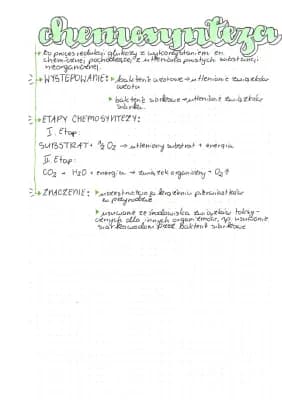 chemosynteza
to proces redukcji glukozy z wykorzystaniem en.
chemicznej pochodzącej z utleniania prostych substancji
nieorganicznej.
WYSTĘPOWANIE: bakterie azotowe → utlenianie związków
azotu
bakterie siarkowe → utlenianie związków
siarki
ETAPY CHEMOSYNTEZY:
I. Etap:
SUBSTRAT + ½ O₂ → utleniony substrat + energia
II. Etap:
CO₂ + H₂O + energia → związek organiczny + O₂?
ZNACZENIE: uczestnictwo w krążeniu pierwiastków
w przyrodzie
usuwanie ze środowiska związków toksy-
cznych dla innych organizmów, np. usuwanie
siarkowodoru przez bakterie siarkowe